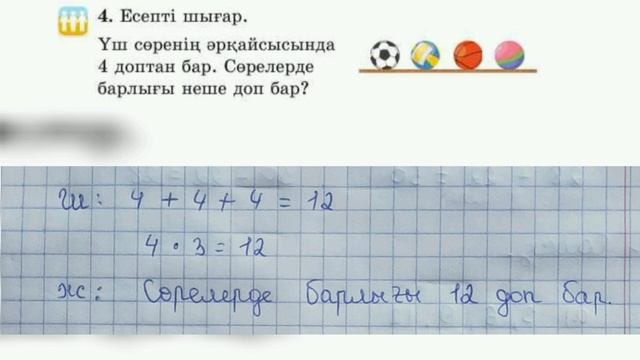 4. Есепті шығар.
Үш сөренің әрқайсысында
4 доптан бар. Сөрелерде
барлығы неше доп бар?
Ш: 4 + 4 + 4 = 12
4 · 3 = 12
Ж: Сөрелерде барлығы 12 доп бар.